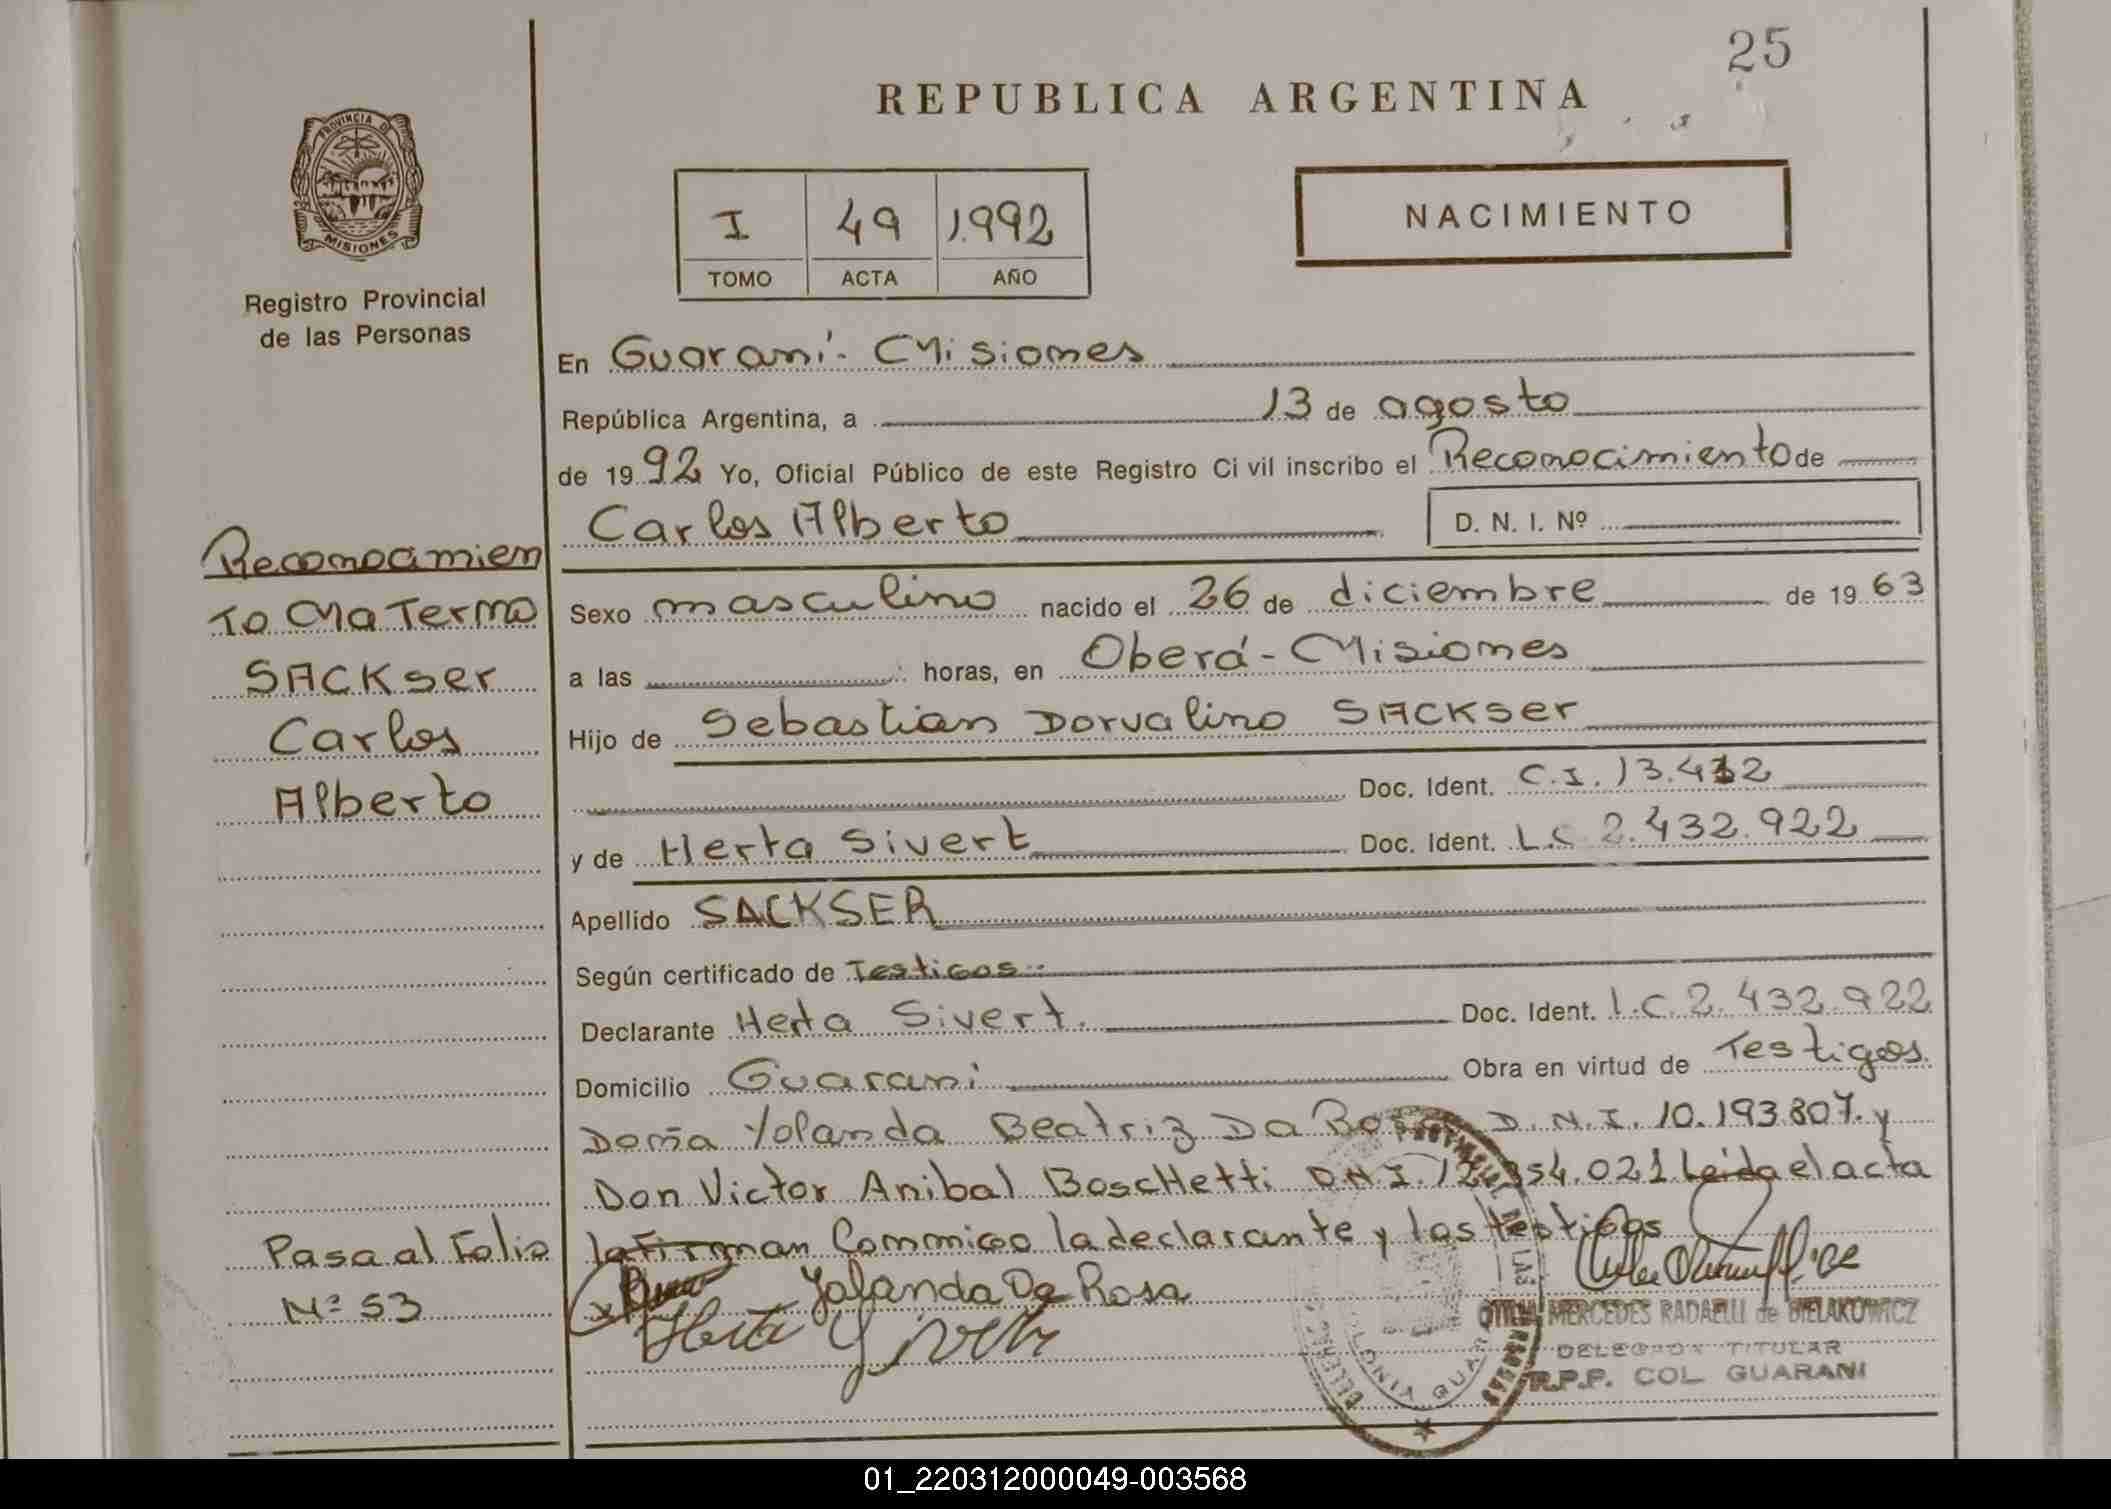 25
REPUBLICA ARGENTINA
PROVINCIA DE
MISIONES
Registro Provincial
de las Personas
I 49 1.992
TOMO ACTA AÑO
NACIMIENTO
En Guaraní - Misiones
República Argentina, a 13 de agosto
de 19 92 Yo, Oficial Público de este Registro Ci vil inscribo el Reconocimiento de
Carlos Alberto D. N. I. Nº
Sexo masculino nacido el 26 de diciembre de 19 63
a las horas, en Oberá - Misiones
Hijo de Sebastian Dorvalino SACKser
Doc. Ident. C.I. 13.412
y de Herta Sivert Doc. Ident. L.C 2.432.922
Apellido SACKSER
Según certificado de Testigos.
Declarante Herta Sivert. Doc. Ident. L.C. 2.432.922
Domicilio Guarani Obra en virtud de Testigos.
Doña Yolanda Beatriz Da Rosa D.N.I. 10.193.807. y
Don Victor Anibal BoscHetti D.N.I. 12.354.021 Leida el acta
la Firman Conmigo la declarante y los testigos
Yolanda Da Rosa
Herta Sivert
Reconocimien
to Materno
SACKser
Carlos
Alberto
Pasa al Folio
Nº 53
MERCEDES RADAELLI de BIELAKOWICZ
DELEGADA TITULAR
R.P.P. COL. GUARANI
01_220312000049-003568